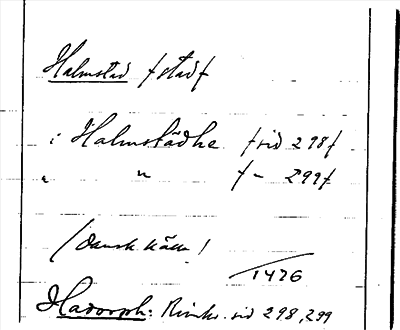 Halmstad /stad/
i Halmstädhe /sid 298/
" " /– 299/
/Dansk källa/
1476
Hadorph: Rimkr. sid 298, 299